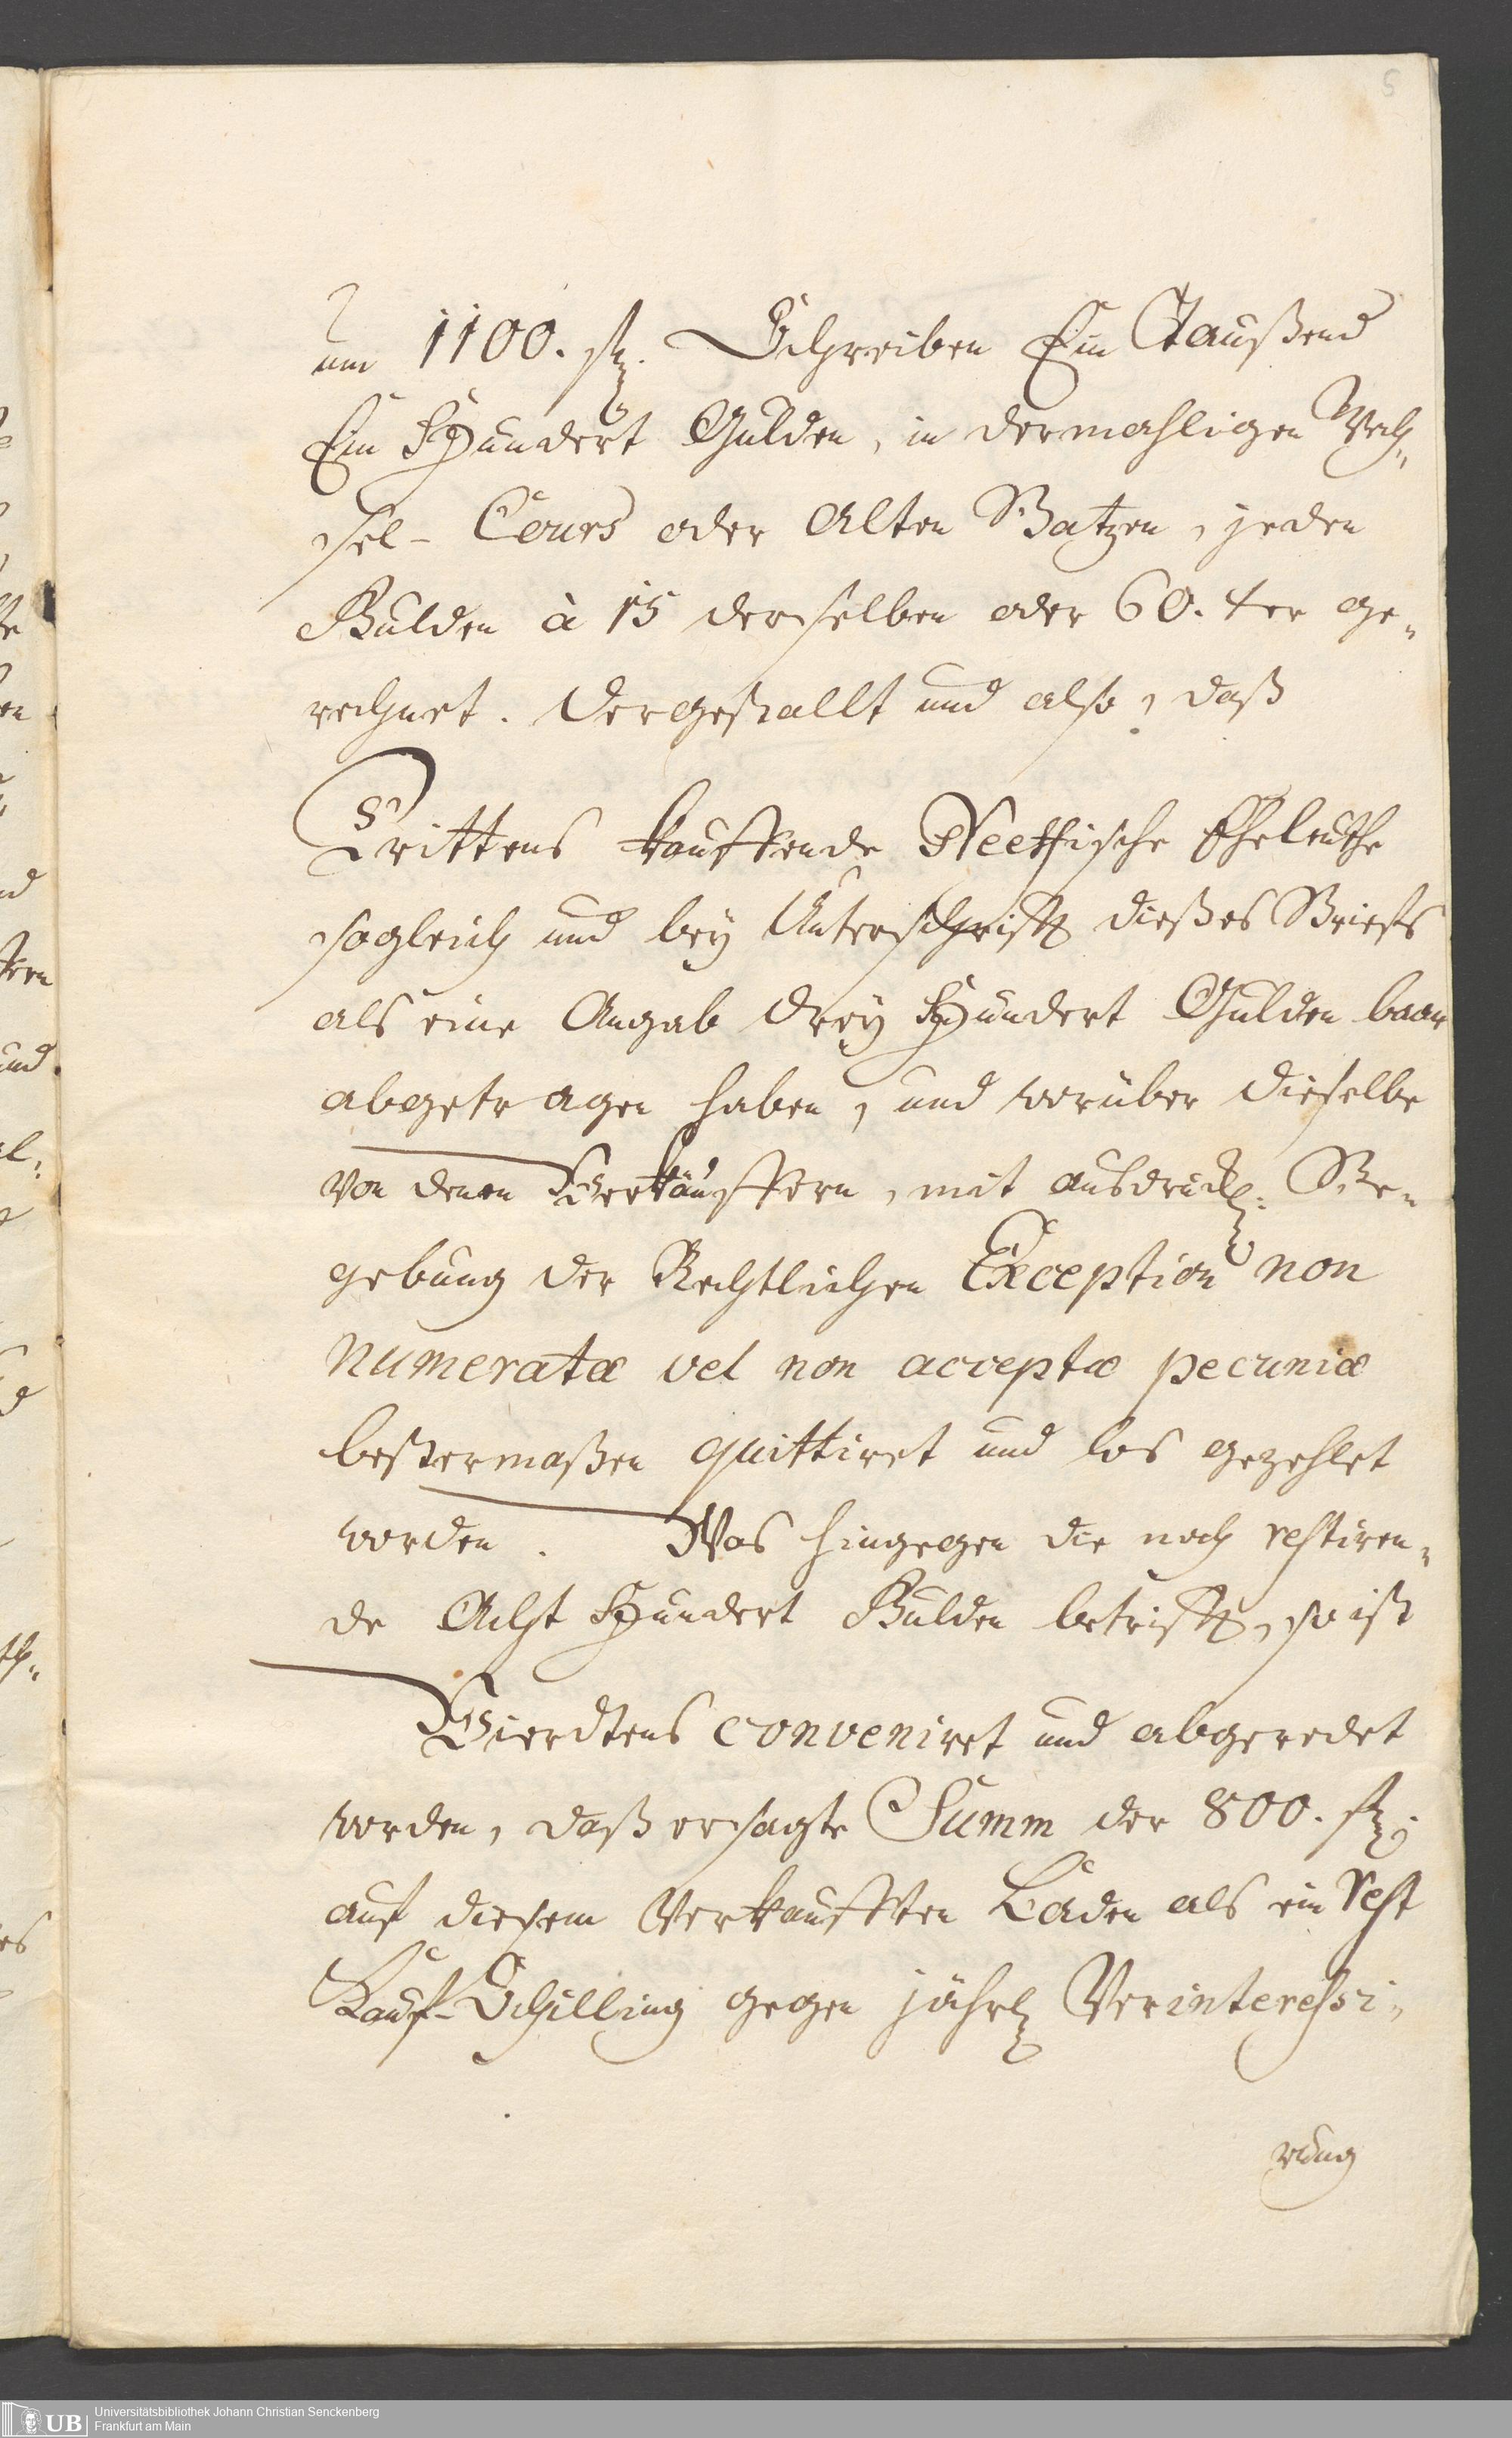 5
um 1100. fl. Schreiben Ein Taußend
Ein Hundert Gulden, in dermahligen Wech-
sel-Cours oder Alten Batzen, jeden
Gulden à 15 derselben oder 60. xer ge-
rechnet. Dergestallt und also, daß
Drittens kauffende Neethische Eheleuthe
sogleich und bey Unterschrifft dießes Briefs
als eine Angab Drey Hundert Gulden baar
abgetragen haben, und worüber dieselbe
von denen Verkäuffern, mit ausdrückl. Be-
gebung der Rechtlichen Exception non
numeratæ vel non acceptæ pecuniæ
bestermaßen quittiret und los gezehlet
worden. Was hingegen die noch restiren-
de Acht Hundert Gulden betrifft, so ist
Vierdtens conveniret und abgeredet
worden, daß ersagte Summ der 800. fl.
auf diesem verkaufften Laden als ein Rest
Kauf-Schilling gegen jährl. Verinteressi-
rung
UB Universitätsbibliothek Johann Christian Senckenberg
Frankfurt am Main